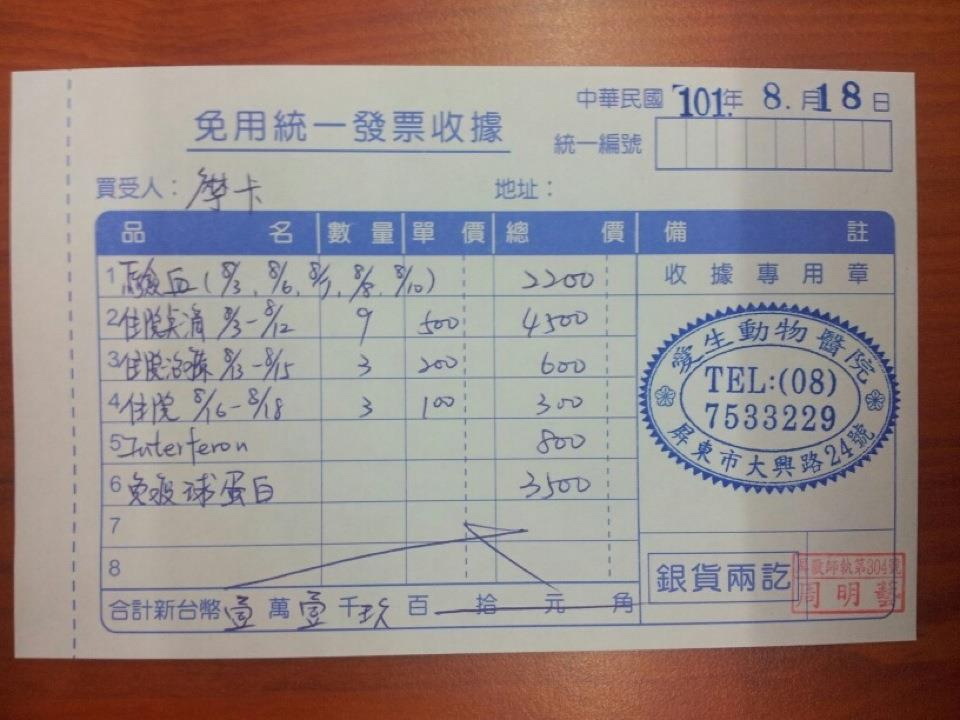 中華民國 101. 年 8. 月 18 日
免用統一發票收據
統一編號
買受人： 摩卡 地址：
品名 數量 單價 總價 備註
1 驗血 (8/3, 8/6, 8/7, 8/8, 8/10) 2200 收據專用章
2 住院點滴 8/3-8/12 9 500 4500
3 住院治療 8/13-8/15 3 200 600
4 住院 8/16-8/18 3 100 300
5 Interferon 800
6 免疫球蛋白 3500
7
8
愛生動物醫院
TEL:(08)
7533229
屏東市大興路24號
銀貨兩訖
師執第304號
周明藝
合計新台幣 壹 萬 壹 千 玖 百 拾 元 角